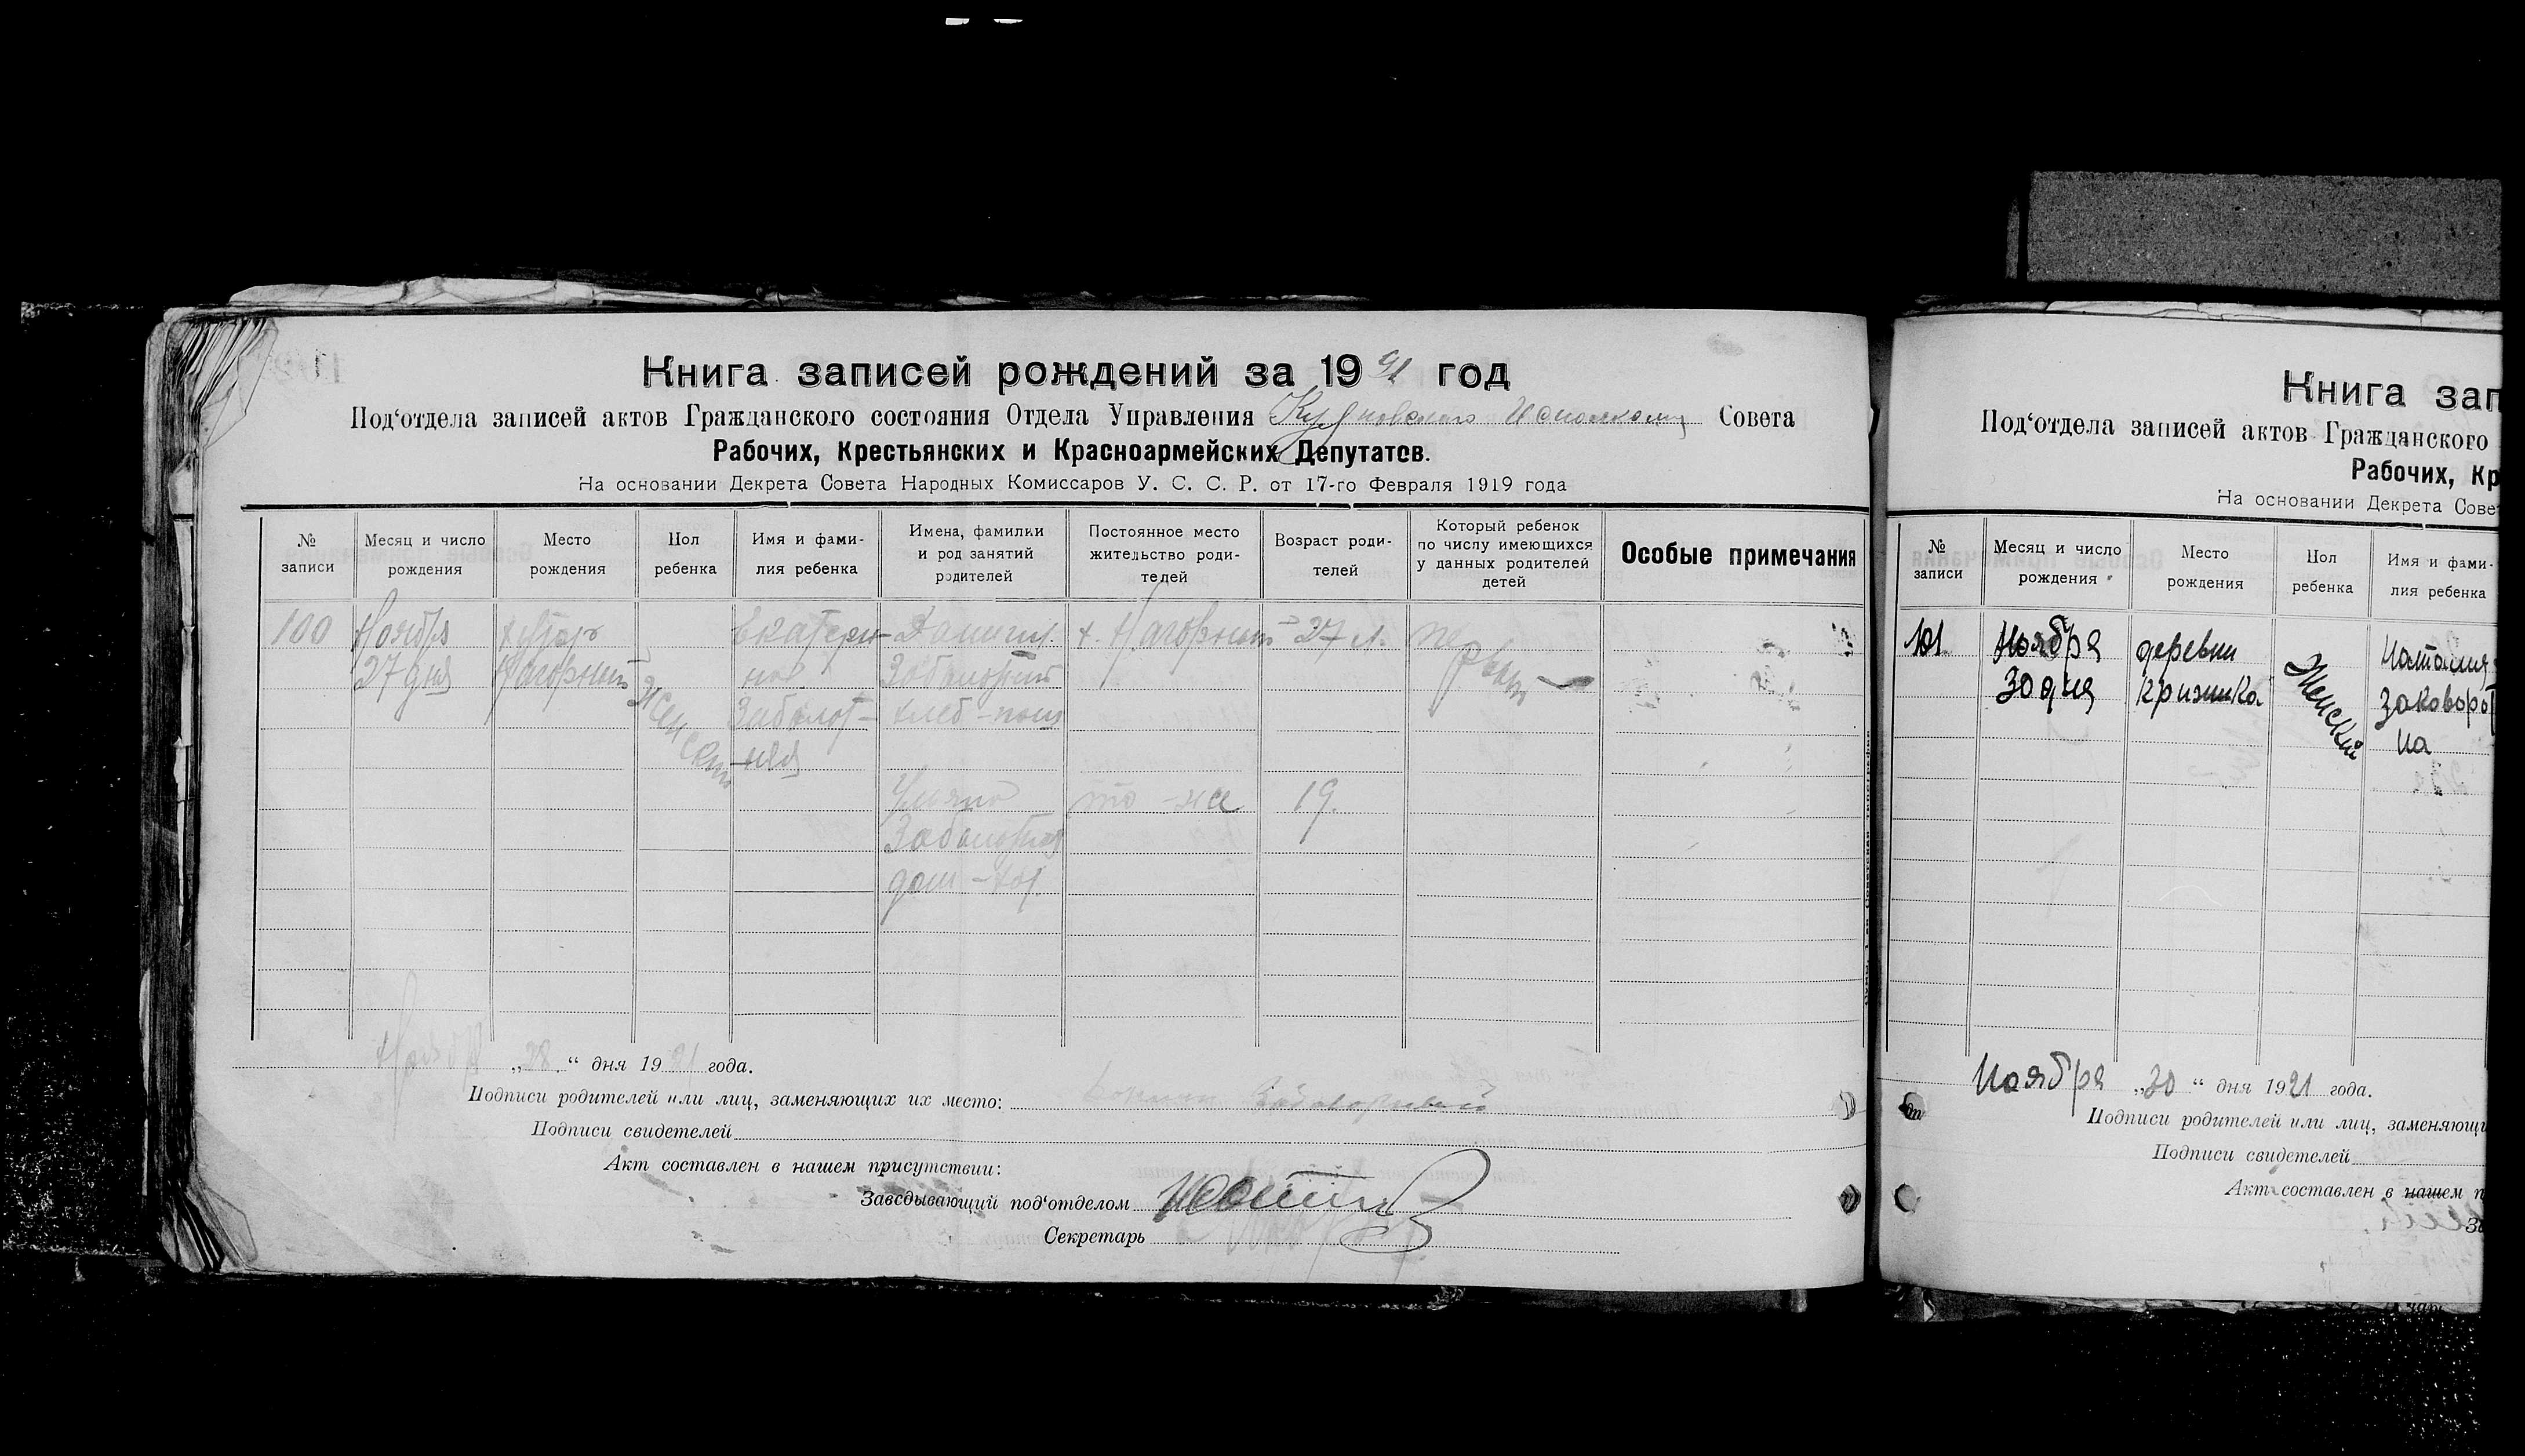 Книга записей рождений за 1921 год
Под‘отдела записей актов Гражданского состояния Отдела Управления Совета
Рабочих, Крестьянских и Красноармейских Депутатов.
На основании Декрета Совета Народных Комиссаров У. С. С. Р. от 17-го Февраля 1919 года
№ записи
Месяц и число рождения
Место рождения
Пол ребенка
Имя и фами-
лия ребенка
Имена, фамилии
и род занятий
родителей
Постоянное место
жительство роди-
телей
Возраст роди-
телей
Который ребенок
по числу имеющихся
у данных родителей
детей
Особые примечания
100
Ноября
27 дня
хутор
Нагорный
Женский
Екатери-
Заболот-
ная
Даниил
Заболотный
хлеб-паш
х. Нагорный
27 л.
пе
рвый
Заболотная
дом-хоз.
то-же
19.
Ноября „28“ дня 1921 года.
Подписи родителей или лиц, заменяющих их место:
Подписи свидетелей
Акт составлен в нашем присутствии:
Заведывающий под‘отделом
Секретарь
Книга зап
Под‘отдела записей актов Гражданского
Рабочих, Кр
На основании Декрета Сове
№ записи
Месяц и число рождения
Место рождения
Пол ребенка
Имя и фами-
лия ребенка
101.
Ноября
30 дня
деревни
Женский
Наталия
Заковорот
на
Ноября „30“ дня 1921 года.
Подписи родителей или лиц, заменяющи
Подписи свидетелей
Акт составлен в нашем п